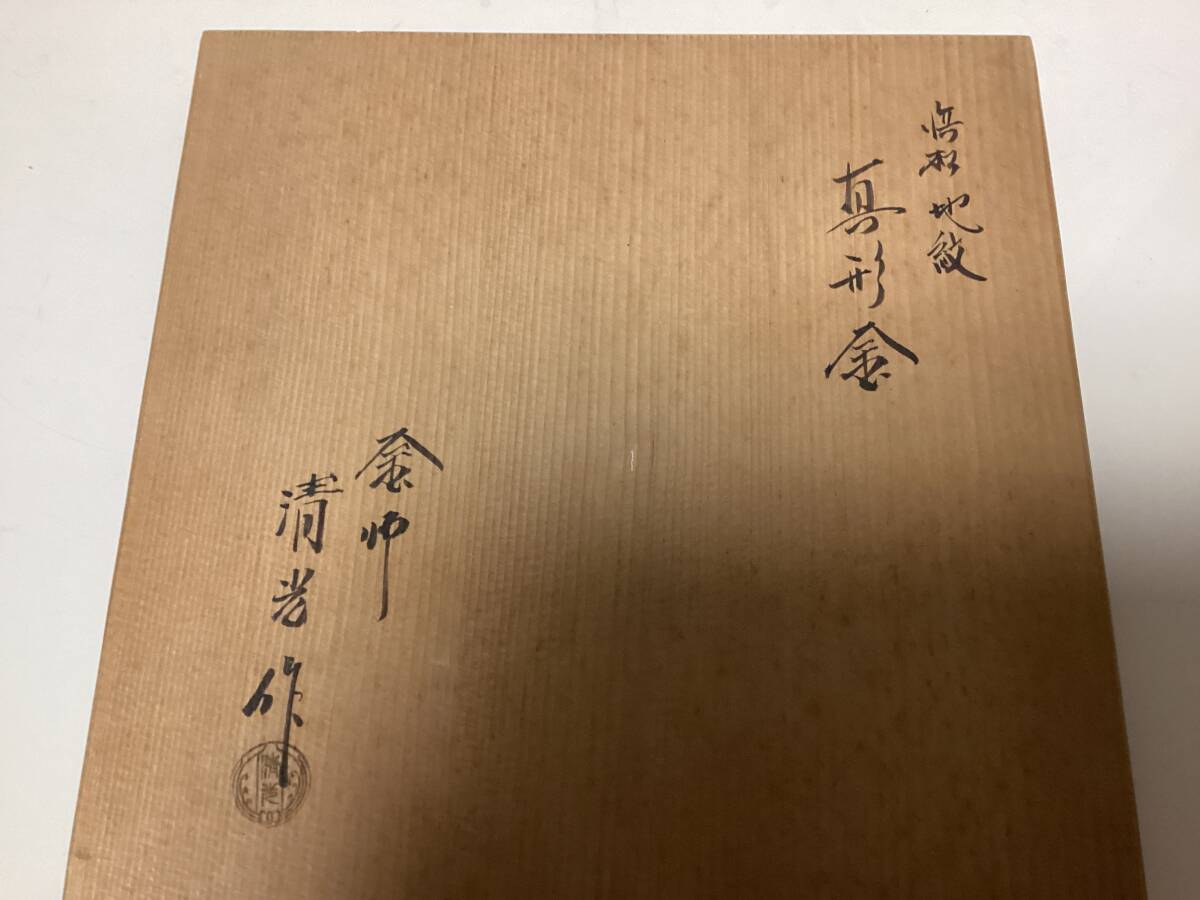 浜松地紋
真形釜
釜师
清光作
清光